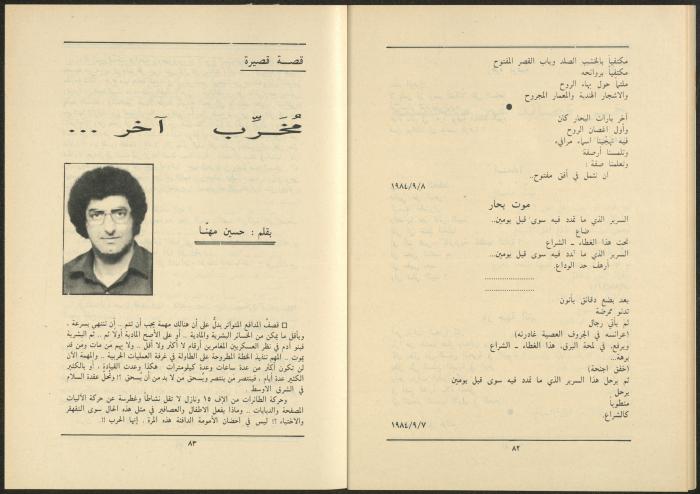 مكتفياً بالخشب الصلد وباب القصر المفتوح
مكتفياً بروائحه
ملتماً حول بهاء الروح
والاشجار الهندية والمعمار المجروح
●
آخر بارات البحار كان
وأول اغصان الروح
فيه تهجّينا اسماء مرافىء
وتلمسنا أرصفة
وتعلمنا صفة :
ان نثمل في أفق مفتوح..
١٩٨٤/٩/٨
موت بحار
السرير الذي ما تمدد فيه سوى قبل يومين..
ضاع
تحت هذا الغطاء ـ الشراع
السرير الذي ما تمدد فيه سوى قبل يومين..
أرهف حد الوداع.
بعد بضع دقائق يأتون
تدنو ممرضة
ثم يأتي رجال
(عرائسه في الجروف العصية غادرنه)
ويرفع، في لمحة البرق، هذا الغطاء ـ الشراع
برهة..
(خفق اجنحة)
ثم يرحل هذا السرير الذي ما تمدد فيه سوى قبل يومين
يرحل
منطوياً
كالشراع.
١٩٨٤/٩/٧
٨٢
قصة قصيرة
مُخَرِّب آخر ...
بقلم : حسين مهنّا
□ قصفُ المدافع المتواتر يدلُّ على أن هنالك مهمة يجب أن تتم .. أن تنتهي بسرعة ،
وبأقل ما يمكن من الخسائر البشرية والمادية .. أو على الأصح المادية أولا ثم .. ثم البشرية
فبنو آدم في نظر العسكريين المغامرين أرقام لا أكثر ولا أقل .. ولا يهم من مات ومن قد
يموت .. المهم تنفيذ الخطة المطروحة على الطاولة في غرفة العمليات الحربية .. والمهمة الآن
لن تكون أكثر من عدة ساعات وعدة كيلومترات . هكذا وعدت القيادة ، أو بالكثير
الكثير عدة أيام ، فينتصر من ينتصر ويُسحق من لا بد من أن يُسحق ؟! وتُحلُّ عقدة السلام
في الشرق الاوسط .
وحركة الطائرات من الإف ١٥ ونازل لا تقل نشاطاً وغطرسة عن حركة الآليات
المصفحة والدبابات .. وماذا يفعل الاطفال والعصافير في مثل هذه الحال سوى التقهقر
والاختباء ؟! ليس في احضان الأمومة الدافئة هذه المرة . إنها الحرب !!
٨٣